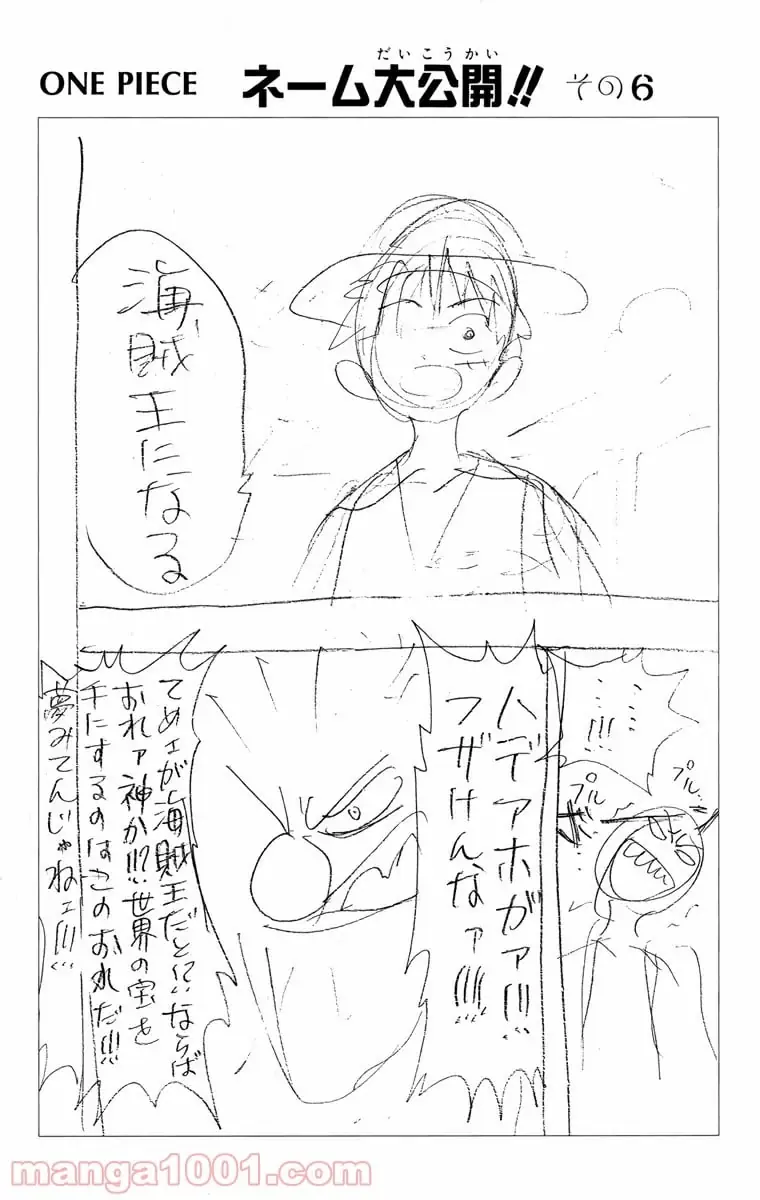 ONE PIECE ネーム大公開!! その6
だいこうかい
海賊王になる
……
!!!
プル
プル…
ハデアホがァ!!!
フザけんなァ!!!!
てめェが海賊王だと!?ならば
おれァ神か!!?世界の宝を
手にするのはこのおれだ!!!
夢みてんじゃねェ!!!
manga1001.com